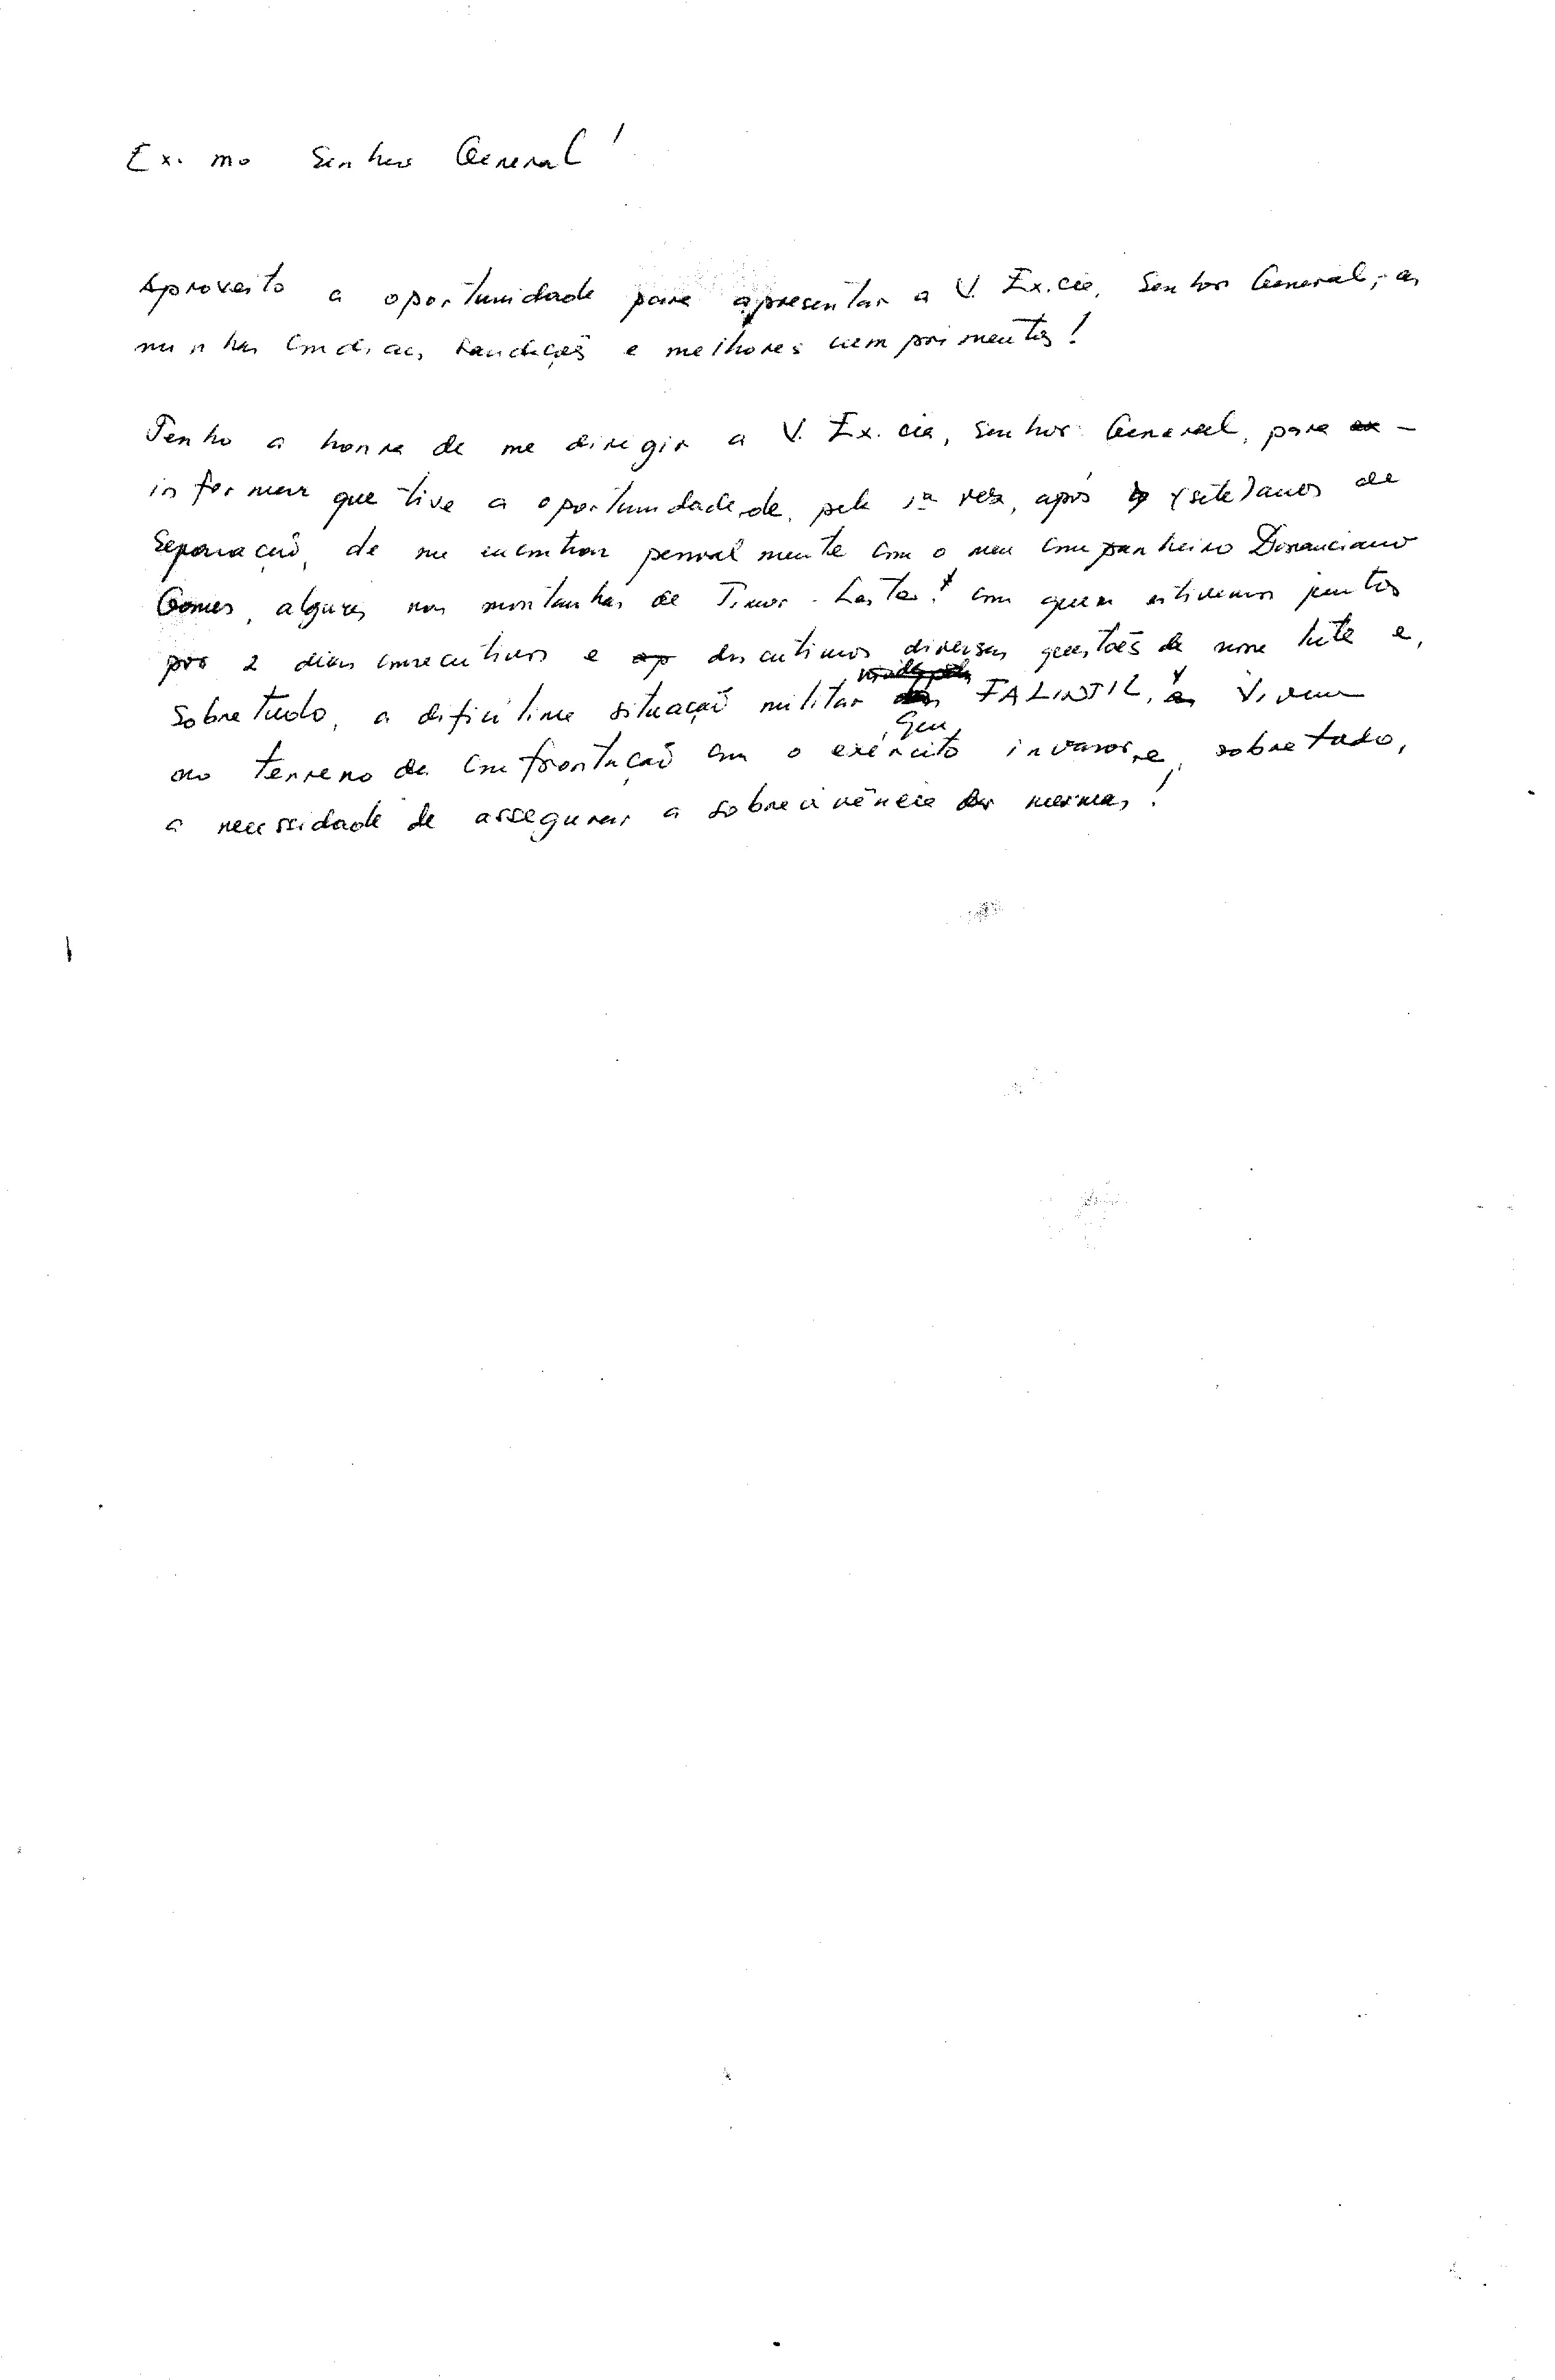 Ex.mo Senhor General!
Aproveito a oportunidade para apresentar a V. Ex.cia, Senhor General, as
minhas cordiais saudações e melhores cumprimentos!
Tenho a honra de me dirigir a V. Ex.cia, Senhor General, para
informar que tive a oportunidade de, pela 1ª vez, após 7 (sete) anos de
separação, de me encontrar pessoalmente com o meu companheiro Domanciano
Gomes, algures nas montanhas de Timor-Leste! com quem estivemos juntos
por 2 dias consecutivos e discutimos diversas questões da nossa luta e,
sobretudo, a dificílima situação militar FALINTIL, vivem
no terreno da confrontação com o exército invasor, e, sobretudo,
que
a necessidade de assegurar a sobrevivência das mesmas!